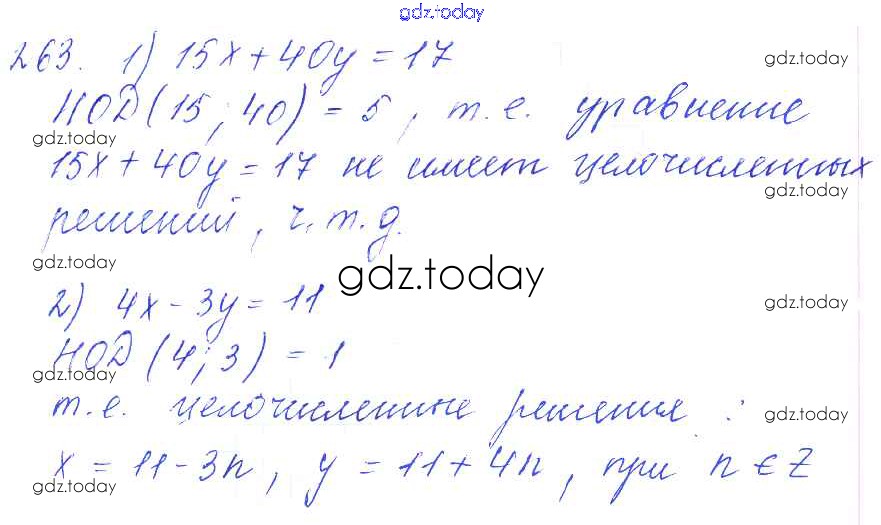 gdz.today
263. 1) 15x + 40y = 17
gdz.today
НОД (15; 40) = 5, т.е. уравнение
gdz.today
15x + 40y = 17 не имеет целочисленных
gdz.today
решений, ч.т.д.
gdz.today
gdz.today
2) 4x - 3y = 11
gdz.today
НОД (4; 3) = 1
gdz.today
т.е. целочисленные решения:
gdz.today
x = 11 - 3n, y = 11 + 4n, при n ∈ Z
gdz.today